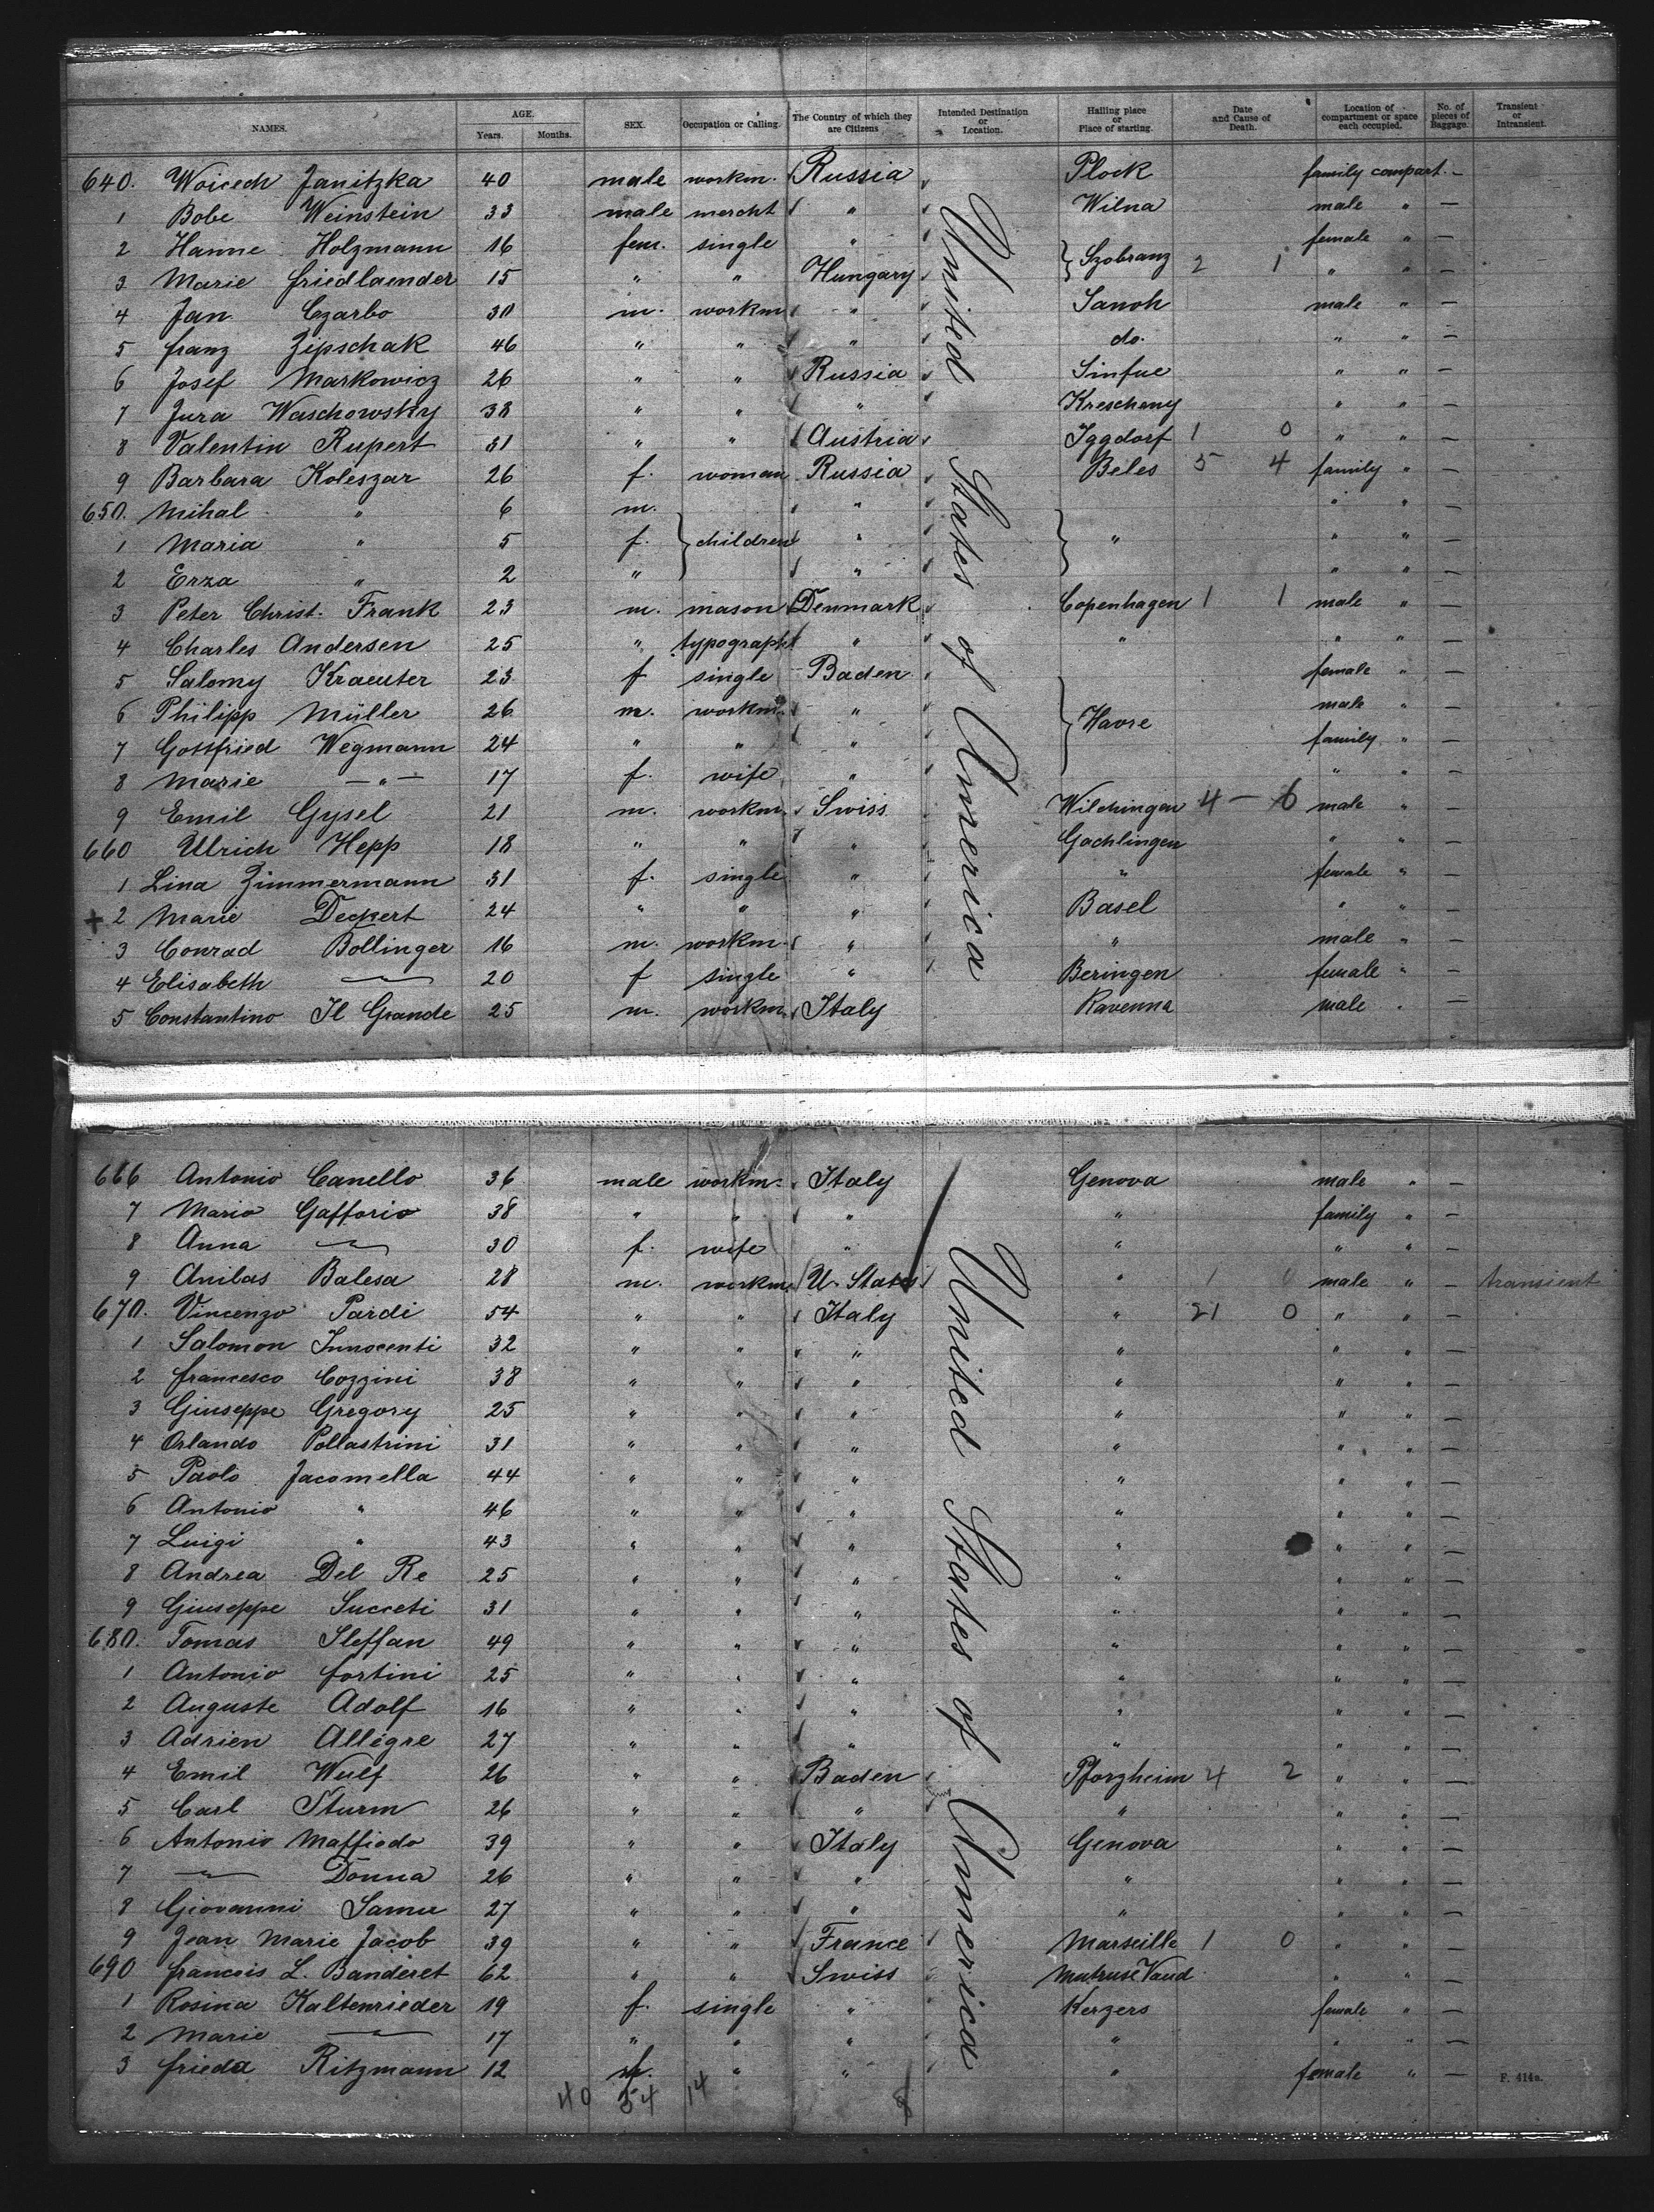 NAMES. AGE. Years. Months. SEX. Occupation or Calling. The Country of which they are Citizens Intended Destination or Location. Hailing place or Place of starting. Date and Cause of Death. Location of compartment or space each occupied. No. of pieces of Baggage. Transient or Intransient.
640. Woicech Janitzka 40 male workm. Russia Plock family compart. —
1 Bobe Weinstein 33 male mercht " Wilna male " —
2 Hanne Holzmann 16 fem. single " Szobranz 2 1 female " —
3 Marie Friedlaender 15 " " Hungary " " —
4 Jan Czarbo 30 m. workm " Sanok male " —
5 Franz Zipschak 46 " " " do. " " —
6 Josef Markowicz 26 " " Russia Sinfue " " —
7 Jura Waschowsky 38 " " " Kreschany " " —
8 Valentin Rupert 31 " " Austria Iggdorf 1 0 " " —
9 Barbara Koleszar 26 f. woman Russia Beles 5 4 family " —
650. Mihal " 6 m. " " " —
1 Maria " 5 f. children " " " " —
2 Erza " 2 " " " " —
3 Peter Christ. Frank 23 m. mason Denmark Copenhagen 1 1 male " —
4 Charles Andersen 25 " typograph " " " " —
5 Salomy Kraeuter 23 f single Baden female " —
6 Philipp Müller 26 m. workm. " Havre male " —
7 Gottfried Wegmann 24 " " " family " —
8 Marie — " — 17 f. wife " " " —
9 Emil Gysel 21 m. workm. Swiss Wilchingen 4 — 6 male " —
660 Ulrich Hepp 18 " " " Gachlingen " " —
1 Lina Zimmermann 31 f. single " " female " —
+ 2 Marie Deckert 24 " " " Basel " " —
3 Conrad Bollinger 16 m. workm. " " male " —
4 Elisabeth — 20 f single " Beringen female " —
5 Constantino Il Grande 25 m. workm. Italy Ravenna male " —
United States of America
666 Antonio Canello 36 male workm. Italy Genova male " —
7 Mario Gafforio 38 " " " " family " —
8 Anna — 30 f. wife " " " " —
9 Anibas Balesa 28 m. workm. U. States " 1 0 male " — transient
670. Vincenzo Pardi 54 " " Italy " 21 0 " " —
1 Salomon Innocenti 32 " " " " " " —
2 Francesco Cozzini 38 " " " " " " —
3 Giuseppe Gregory 25 " " " " " " —
4 Orlando Pollastrini 31 " " " " " " —
5 Paolo Jacomella 44 " " " " " " —
6 Antonio " 46 " " " " " " —
7 Luigi " 43 " " " " " " —
8 Andrea Del Re 25 " " " " " " —
9 Giuseppe Succeti 31 " " " " " " —
680. Tomas Steffan 49 " " " " " " —
1 Antonio Fortini 25 " " " " " " —
2 Auguste Adolf 16 " " " " " " —
3 Adrien Allègre 27 " " " " " " —
4 Emil Wulf 26 " " Baden Pforzheim 4 2 " " —
5 Carl Sturm 26 " " " " " " —
6 Antonio Maffiodo 39 " " Italy Genova " " —
7 — Donna 26 " " " " " " —
8 Giovanni Samu 27 " " " " " " —
9 Jean Marie Jacob 39 " " France Marseille 1 0 " " —
690 Francois L. Banderet 62 " " Swiss Vaud " " —
1 Rosina Kaltenrieder 19 f. single " Kerzers female " —
2 Marie — 17 " " " " " " —
3 Frieda Ritzmann 12 f. " " " female " —
United States of America
40 54 14
F. 414a.